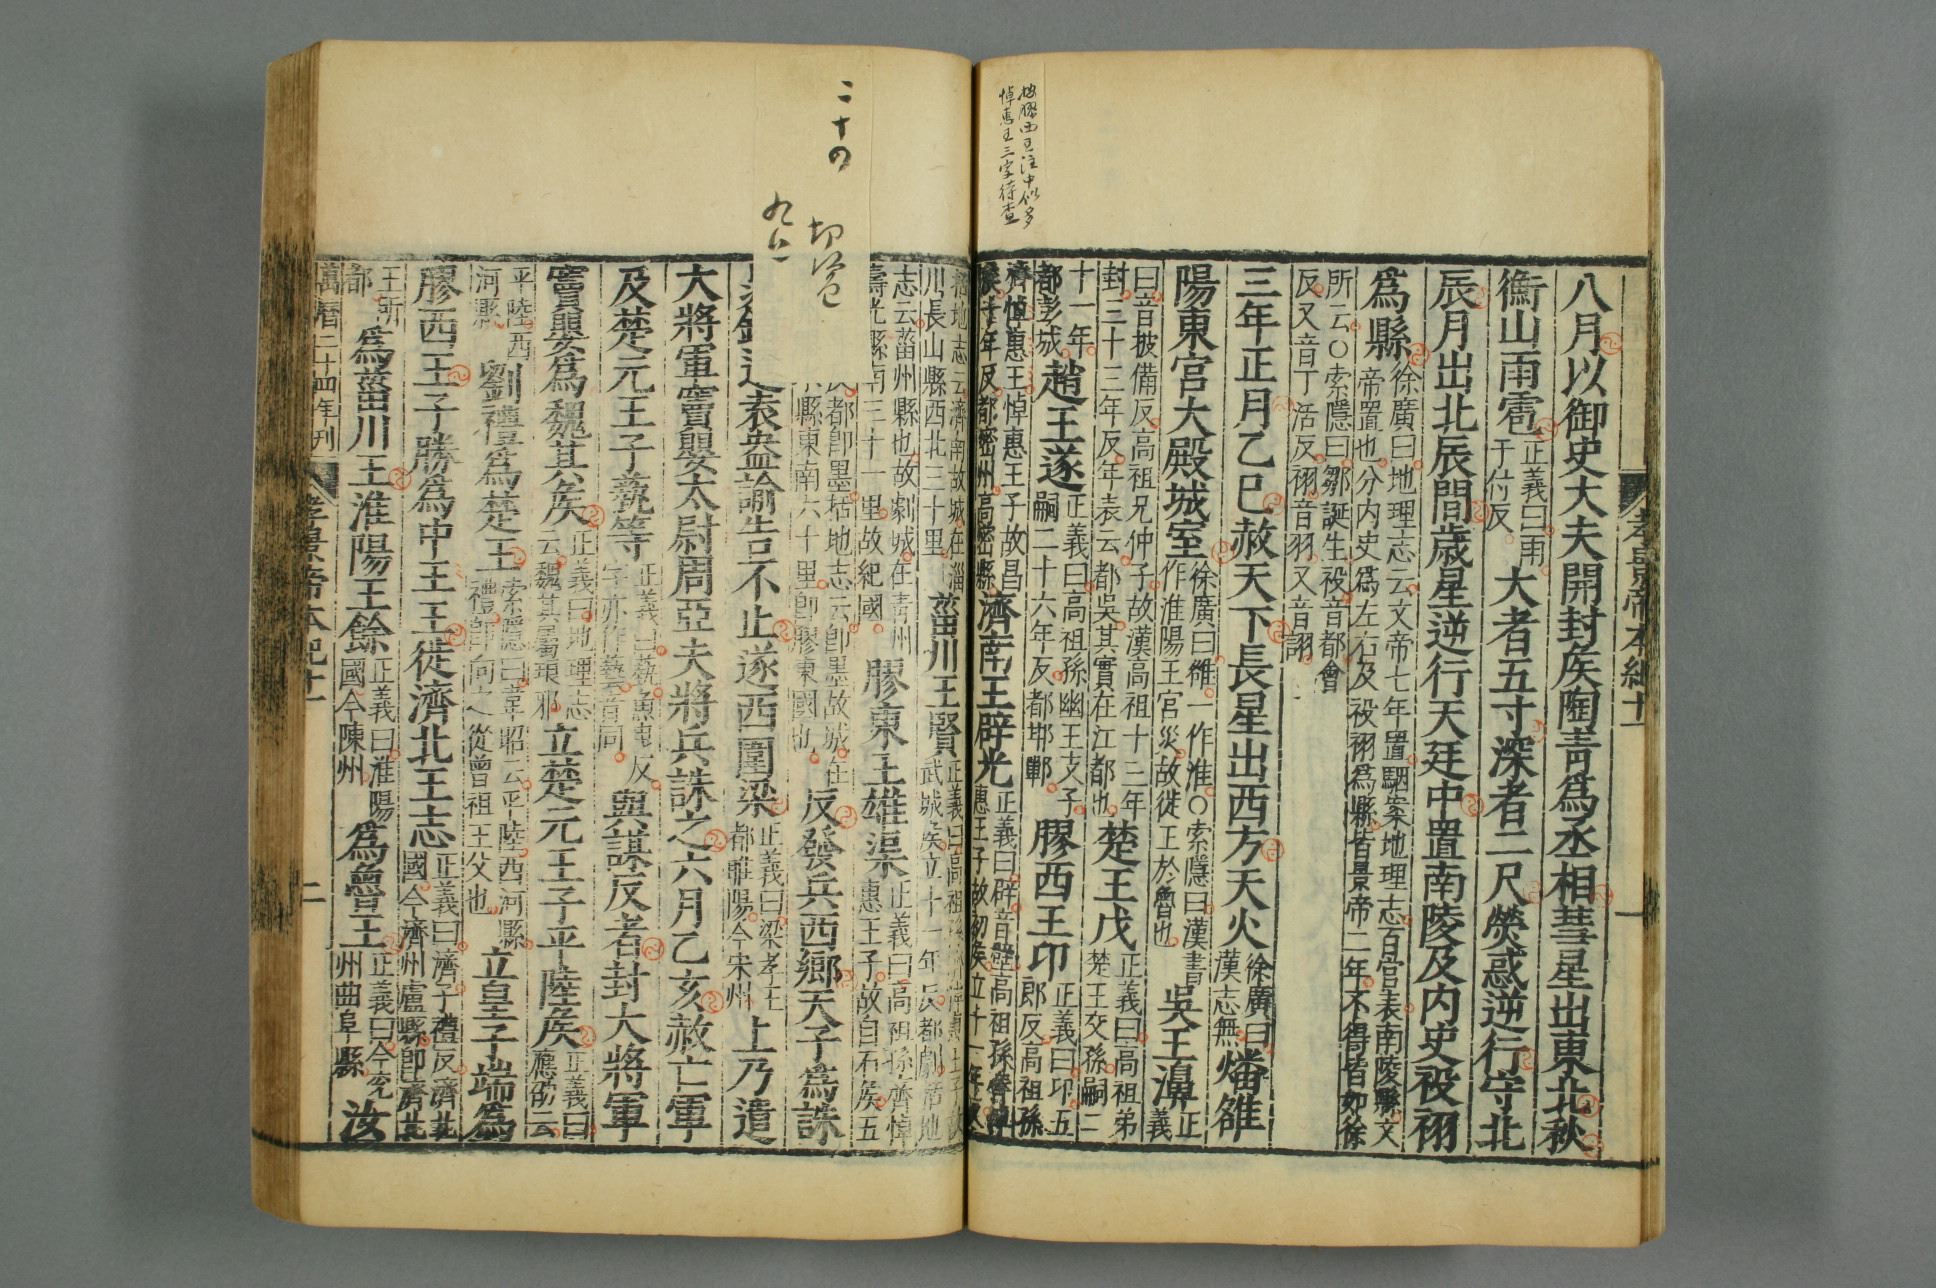 按膠西王注中似多
悼惠王三字待查
孝景帝本紀十一
一
八月以御史大夫開封矦陶青爲丞相彗星出東北秋
衡山雨雹正義曰雨于付反。大者五寸深者二尺熒惑逆行守北
辰月出北辰間歳星逆行天廷中置南陵及内史祋祤
爲縣徐廣曰地理志云文帝七年置駰案地理志百官表南陵縣文帝置也分内史爲左右及祋祤爲縣皆景帝二年不得皆如徐
所云○索隱曰鄒誕生祋音都會反又音丁活反祤音羽又音詡
三年正月乙巳赦天下長星出西方天火徐廣曰漢志無燔雒
陽東宮大殿城室徐廣曰雒一作淮○索隱曰漢書作淮陽王宮災故徙王於魯也吳王濞正義
曰音披備反高祖兄仲子故漢高祖十三年封三十三年反年表云都吳其實在江都也楚王戊正義曰高祖弟楚王交孫嗣二
十一年都彭城趙王遂正義曰高祖孫幽王友子嗣二十六年反都邯鄲膠西王卬正義曰卬五郎反高祖孫
濟悼惠王悼惠王子故昌矦十年反都密州高密縣濟南王辟光正義曰辟音壁高祖孫齊悼惠王子故
地志云濟南故城在淄川長山縣西北三十里菑川王賢正義曰高祖
志云菑州縣也故劇城在青州壽光縣南三十一里故紀國膠東王雄渠正義曰高祖孫齊悼惠王子故白石矦五
都即墨括地志云即墨故城在
縣東南六十里即膠東國也反發兵西郷天子爲誅
遣袁盎諭告不止遂西圍梁正義曰梁孝王都睢陽今宋州上乃遣
大將軍竇嬰太尉周亞夫將兵誅之六月乙亥赦亡軍
及楚元王子蓺等正義曰蓺魚曳反字亦作藝音同與謀反者封大將軍
竇嬰爲魏其矦正義曰地理志云魏其屬琅邪立楚元王子平陸矦正義曰應劭云
平陸西河縣劉禮爲楚王索隱曰韋昭云平陸西河縣禮即向之從曾祖王父也立皇子端爲
膠西王子勝爲中山王徙濟北王志正義曰濟子禮反濟北國今濟州盧縣即濟北
王所都爲菑川王淮陽王餘正義曰淮陽國今陳州爲魯王正義曰今兖州曲阜縣汝
萬曆二十四年刊
孝景帝本紀十一
二
二十四
九上